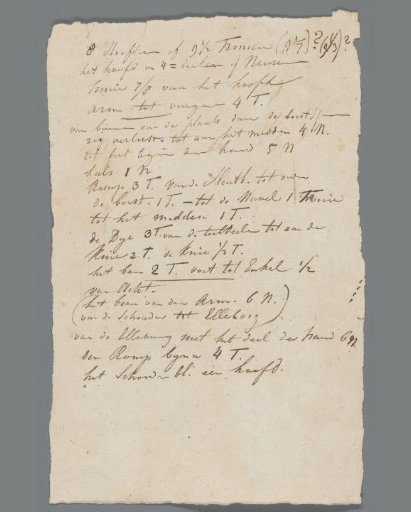 8 Hoofden of 9 1/2 Tronien (9 2/7)? (9 1/3)?
het hoofd in 4 = deelen of Neusen
Tronie 7/8 van het hoofd
arm tot vingers 4 T.
van binnen van de plaats daar de borst
zig verliest tot aan het midden 4 N.
tot het begin der hand 5 N
hals 1 N
Romp 3 T. van de tot onder
de borst. 1 T. – tot de Navel 1 Tronie
tot het midden 1 T.
de Dye 3 T. van de teeldeelen tot aan de
Knie 2 T. de Knie 1/2 T.
het been 2 T. voet tot Enkel 1/2
van Acht.
(het boven van den Arm. 6 N.
van de Schouder tot Elleboog)
van de Elleboog met het deel der hand 6 N.
den Romp byna 4 T.
het Schouder bl. een hoofd.